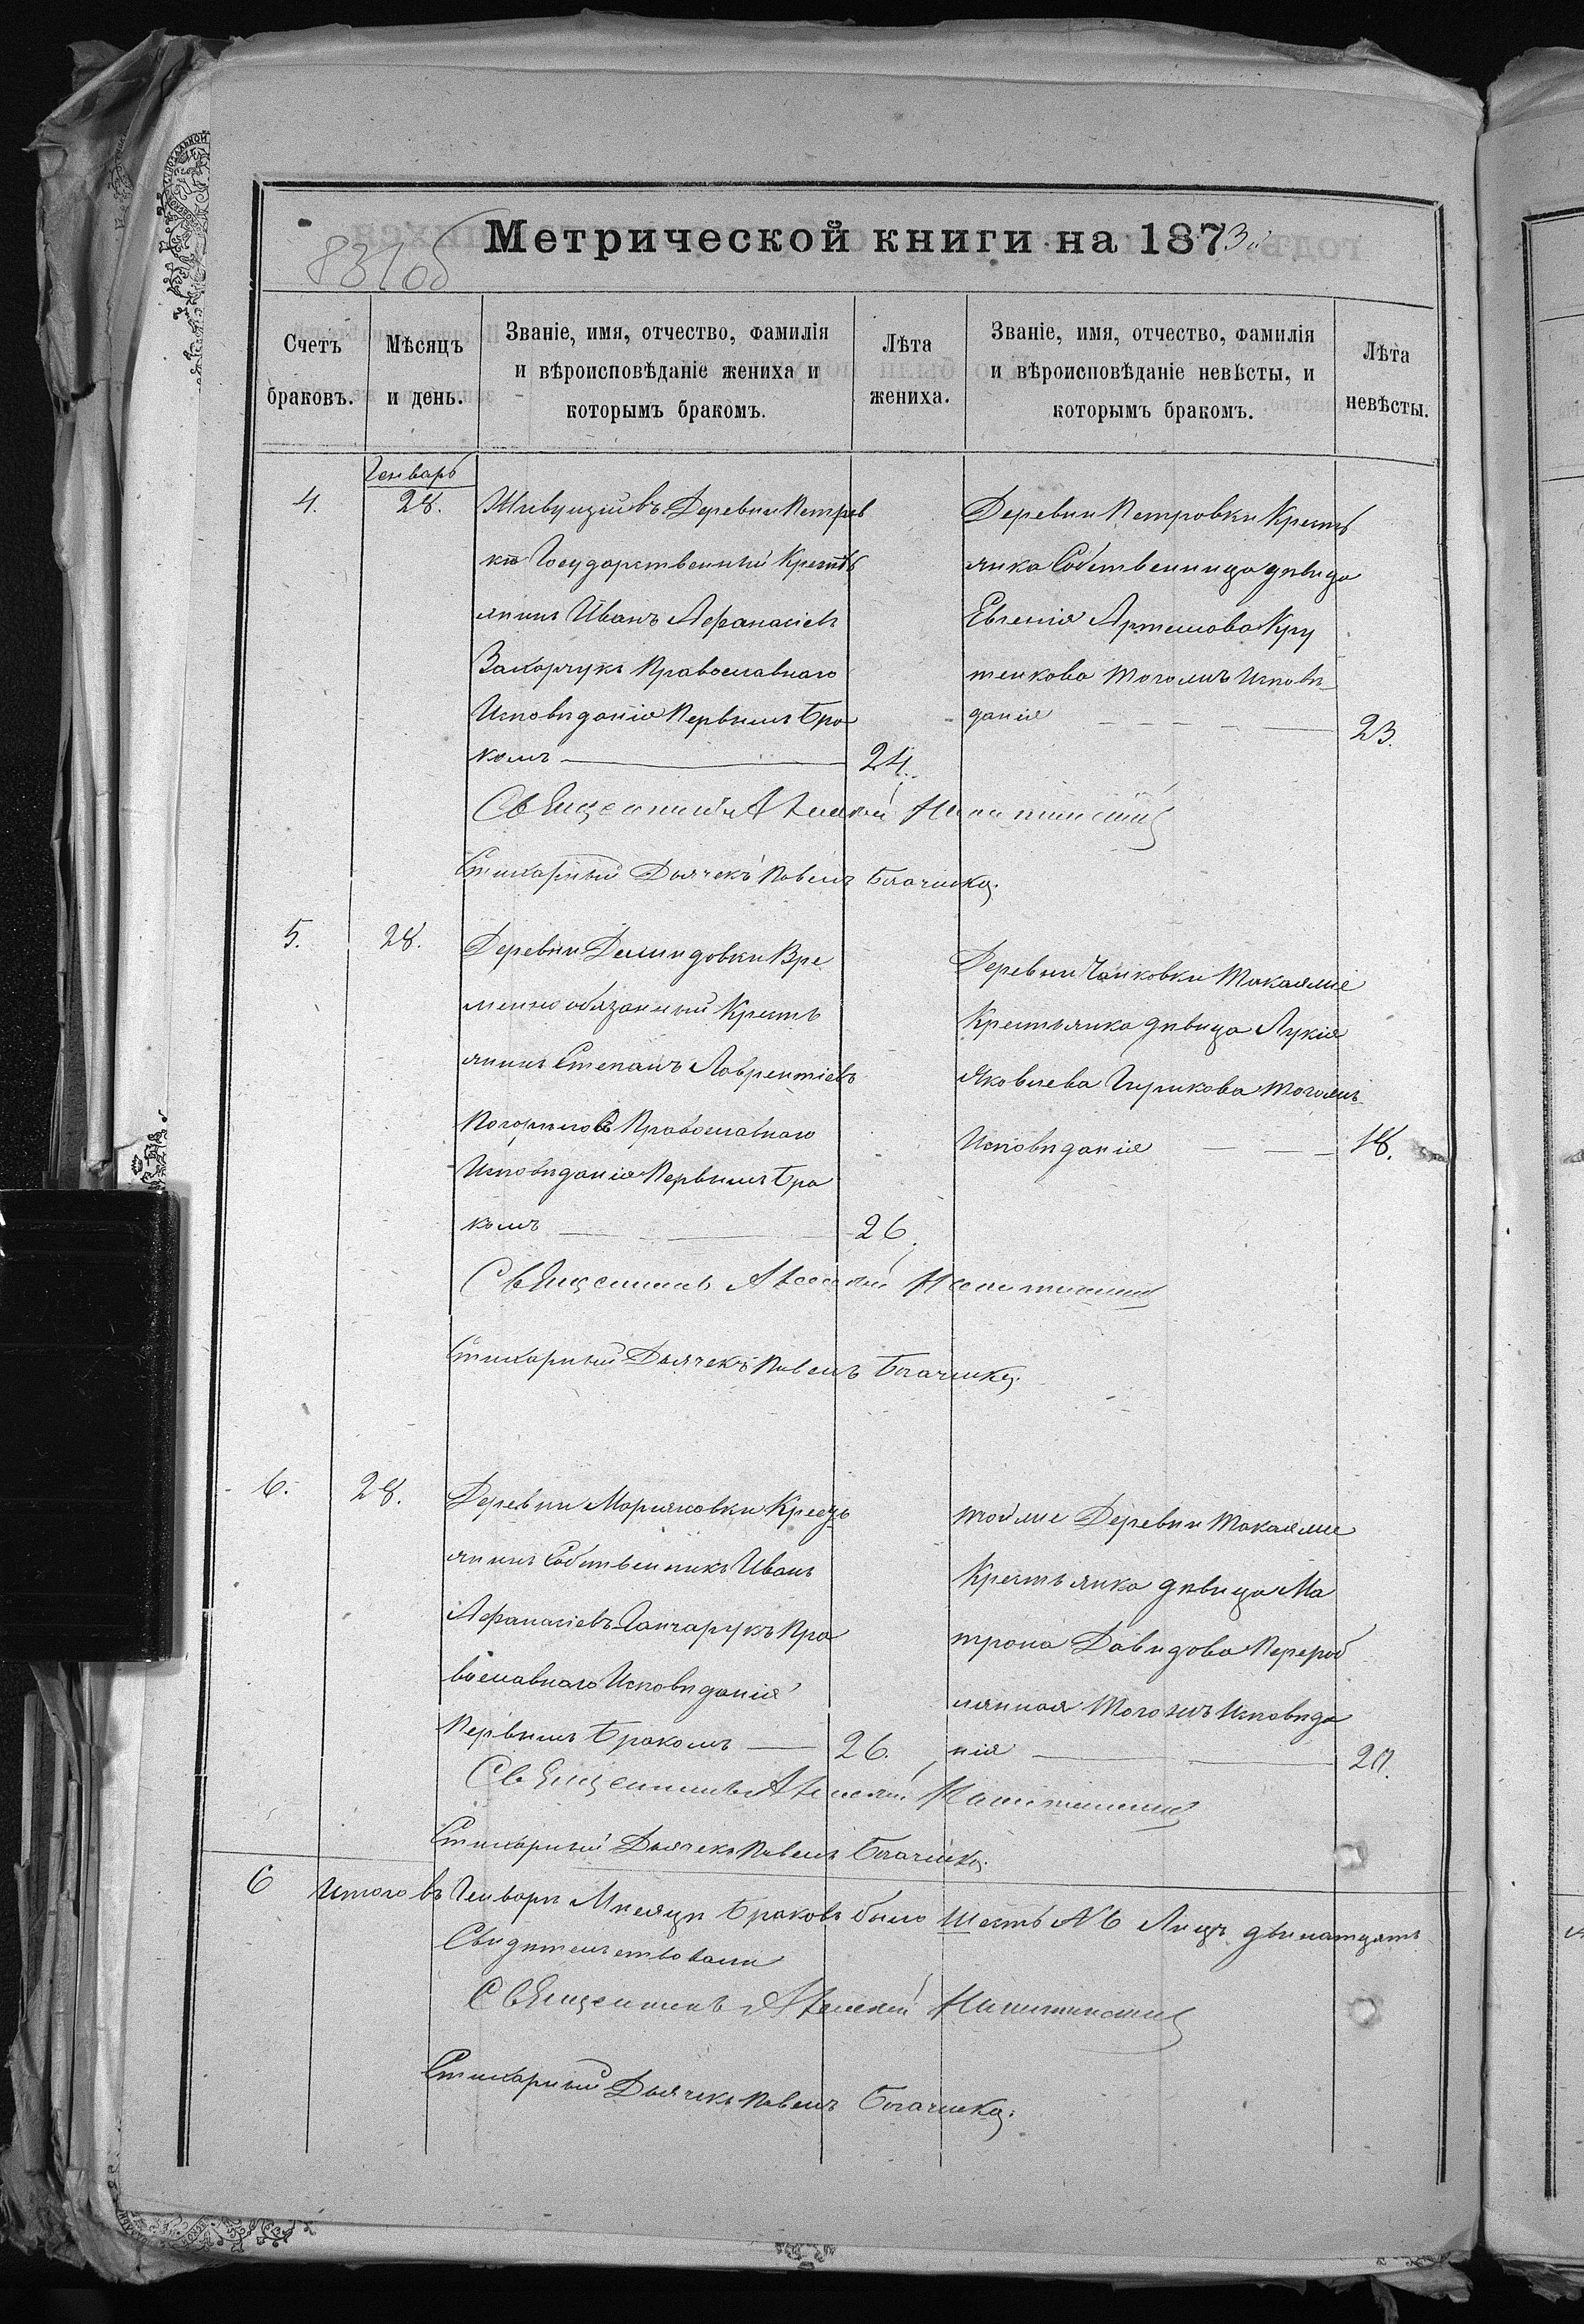 831об
Метрической книги на 1873й
Счетъ браковъ.
Мѣсяцъ и день.
Званіе, имя, отчество, фамилія
и вѣроисповѣданіе жениха и
которымъ бракомъ.
Лѣта
жениха.
Званіе, имя, отчество, фамилія
и вѣроисповѣданіе невѣсты, и
которымъ бракомъ.
Лѣта
невѣсты.
Генварь
4.
28.
Живущій въ Деревни Петров
кѣ Государственный Кресть
янинъ Иванъ Афанасіевъ
Захарчукъ Православнаго
Исповѣданія Первымъ Бра
комъ
24.
Деревни Петровки Кресть
янка Собственница дѣвица
Евгенія Артемова Кру
тенкова тогожъ Исповѣ
данія
23.
Священникъ Алексій
Стихарный Дьячекъ Павелъ
5.
28.
Деревни Демидовки Вре
менно обязанный Кресть
янинъ Степанъ Лаврентіевъ
Погорилов Православнаго
Исповѣданія Первымъ Бра
комъ
26.
Деревни Чайковки Такаяжіе
Крестьянка дѣвица Лукія
Яковлева Гирикова тогожъ
Исповѣданія
18.
Священникъ Алексій
Стихарный Дьячекъ Павелъ
6.
28.
Деревни Марьяновки Кресть
янинъ Собственникъ Иванъ
Афанасіевъ Ганчарукъ Пра
вославнаго Исповѣданія
Первымъ Бракомъ
26.
тойже Деревни Такаяже
Крестьянка дѣвица Ма
трона Давидова Перероб
лянная Тогожъ Исповѣда
нія
20.
Священникъ Алексій
Стихарный Дьячекъ Павелъ
6 Итого въ Генварѣ Мѣсяцѣ Браковъ было Шесть № 6 Лицъ двѣнатцять
Свидѣтельствовали
Священникъ Алексій
Стихарный Дьячекъ Павелъ